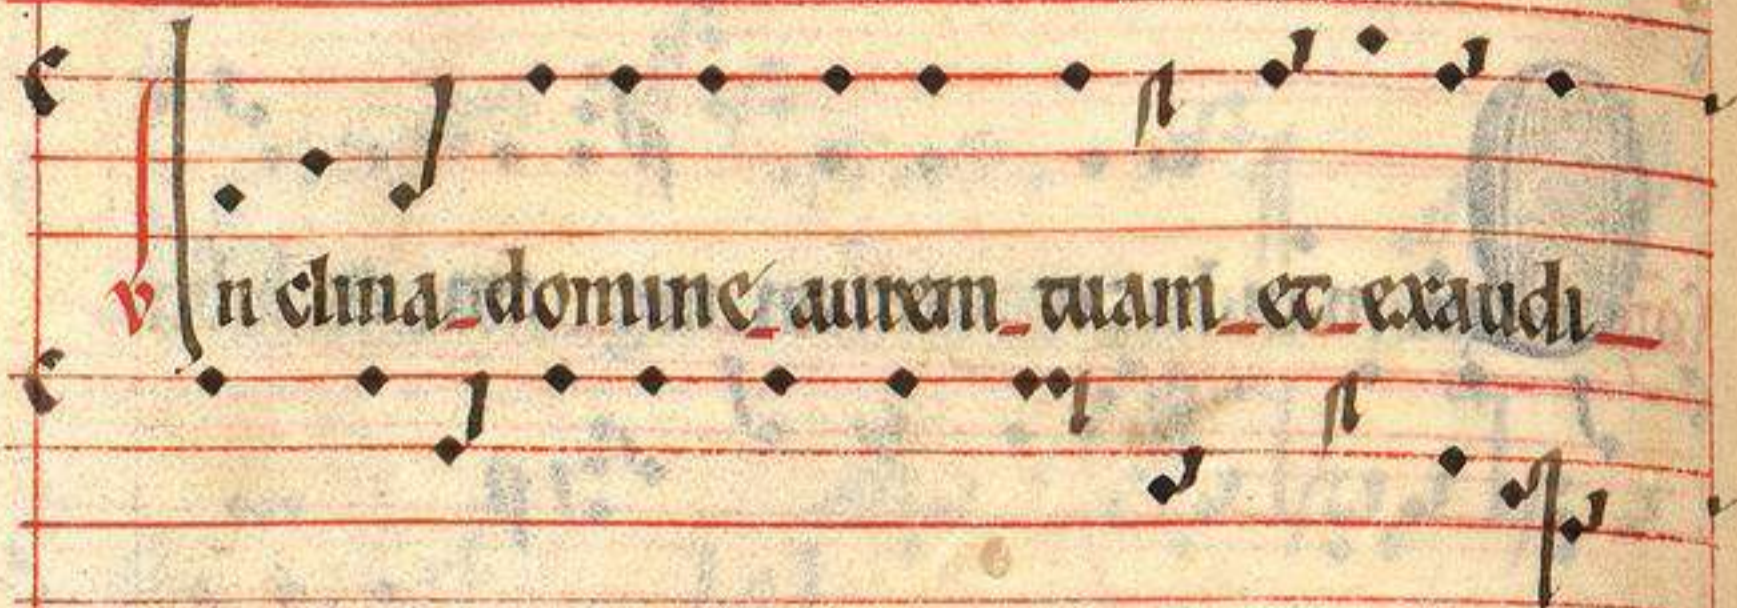 v In clina domine aurem tuam et exaudi